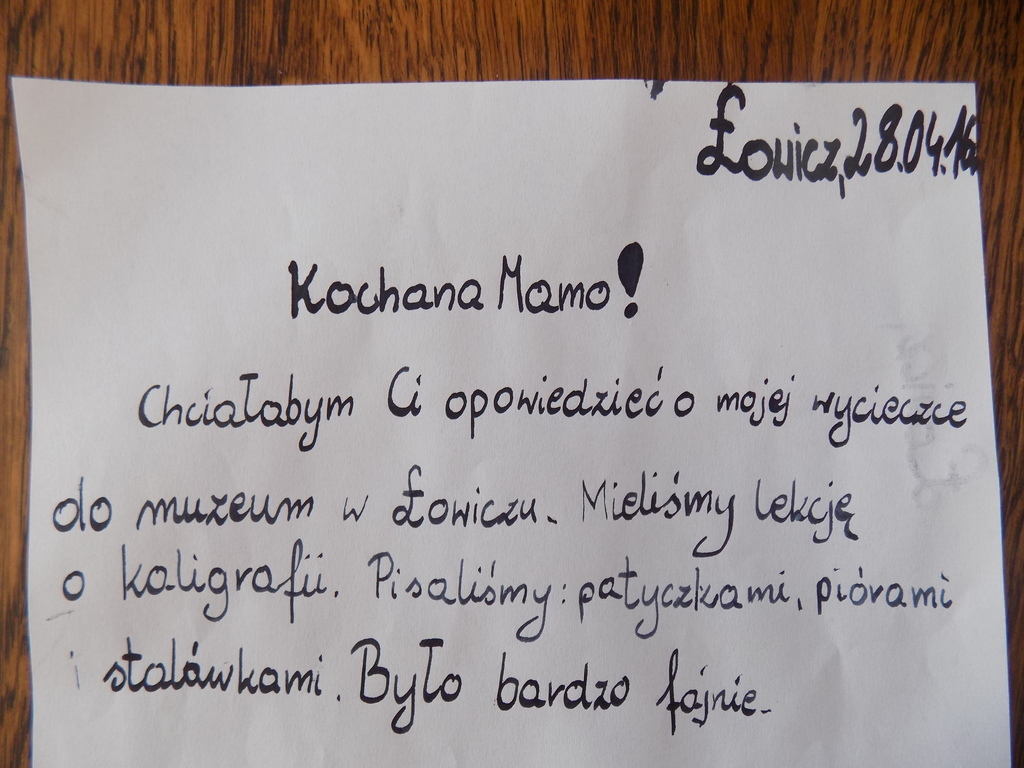 Łowicz, 28.04.16
Kochana Mamo!
Chciałabym Ci opowiedzieć o mojej wycieczce
do muzeum w Łowiczu. Mieliśmy lekcję
o kaligrafii. Pisaliśmy: patyczkami, piórami
i stalówkami. Było bardzo fajnie.